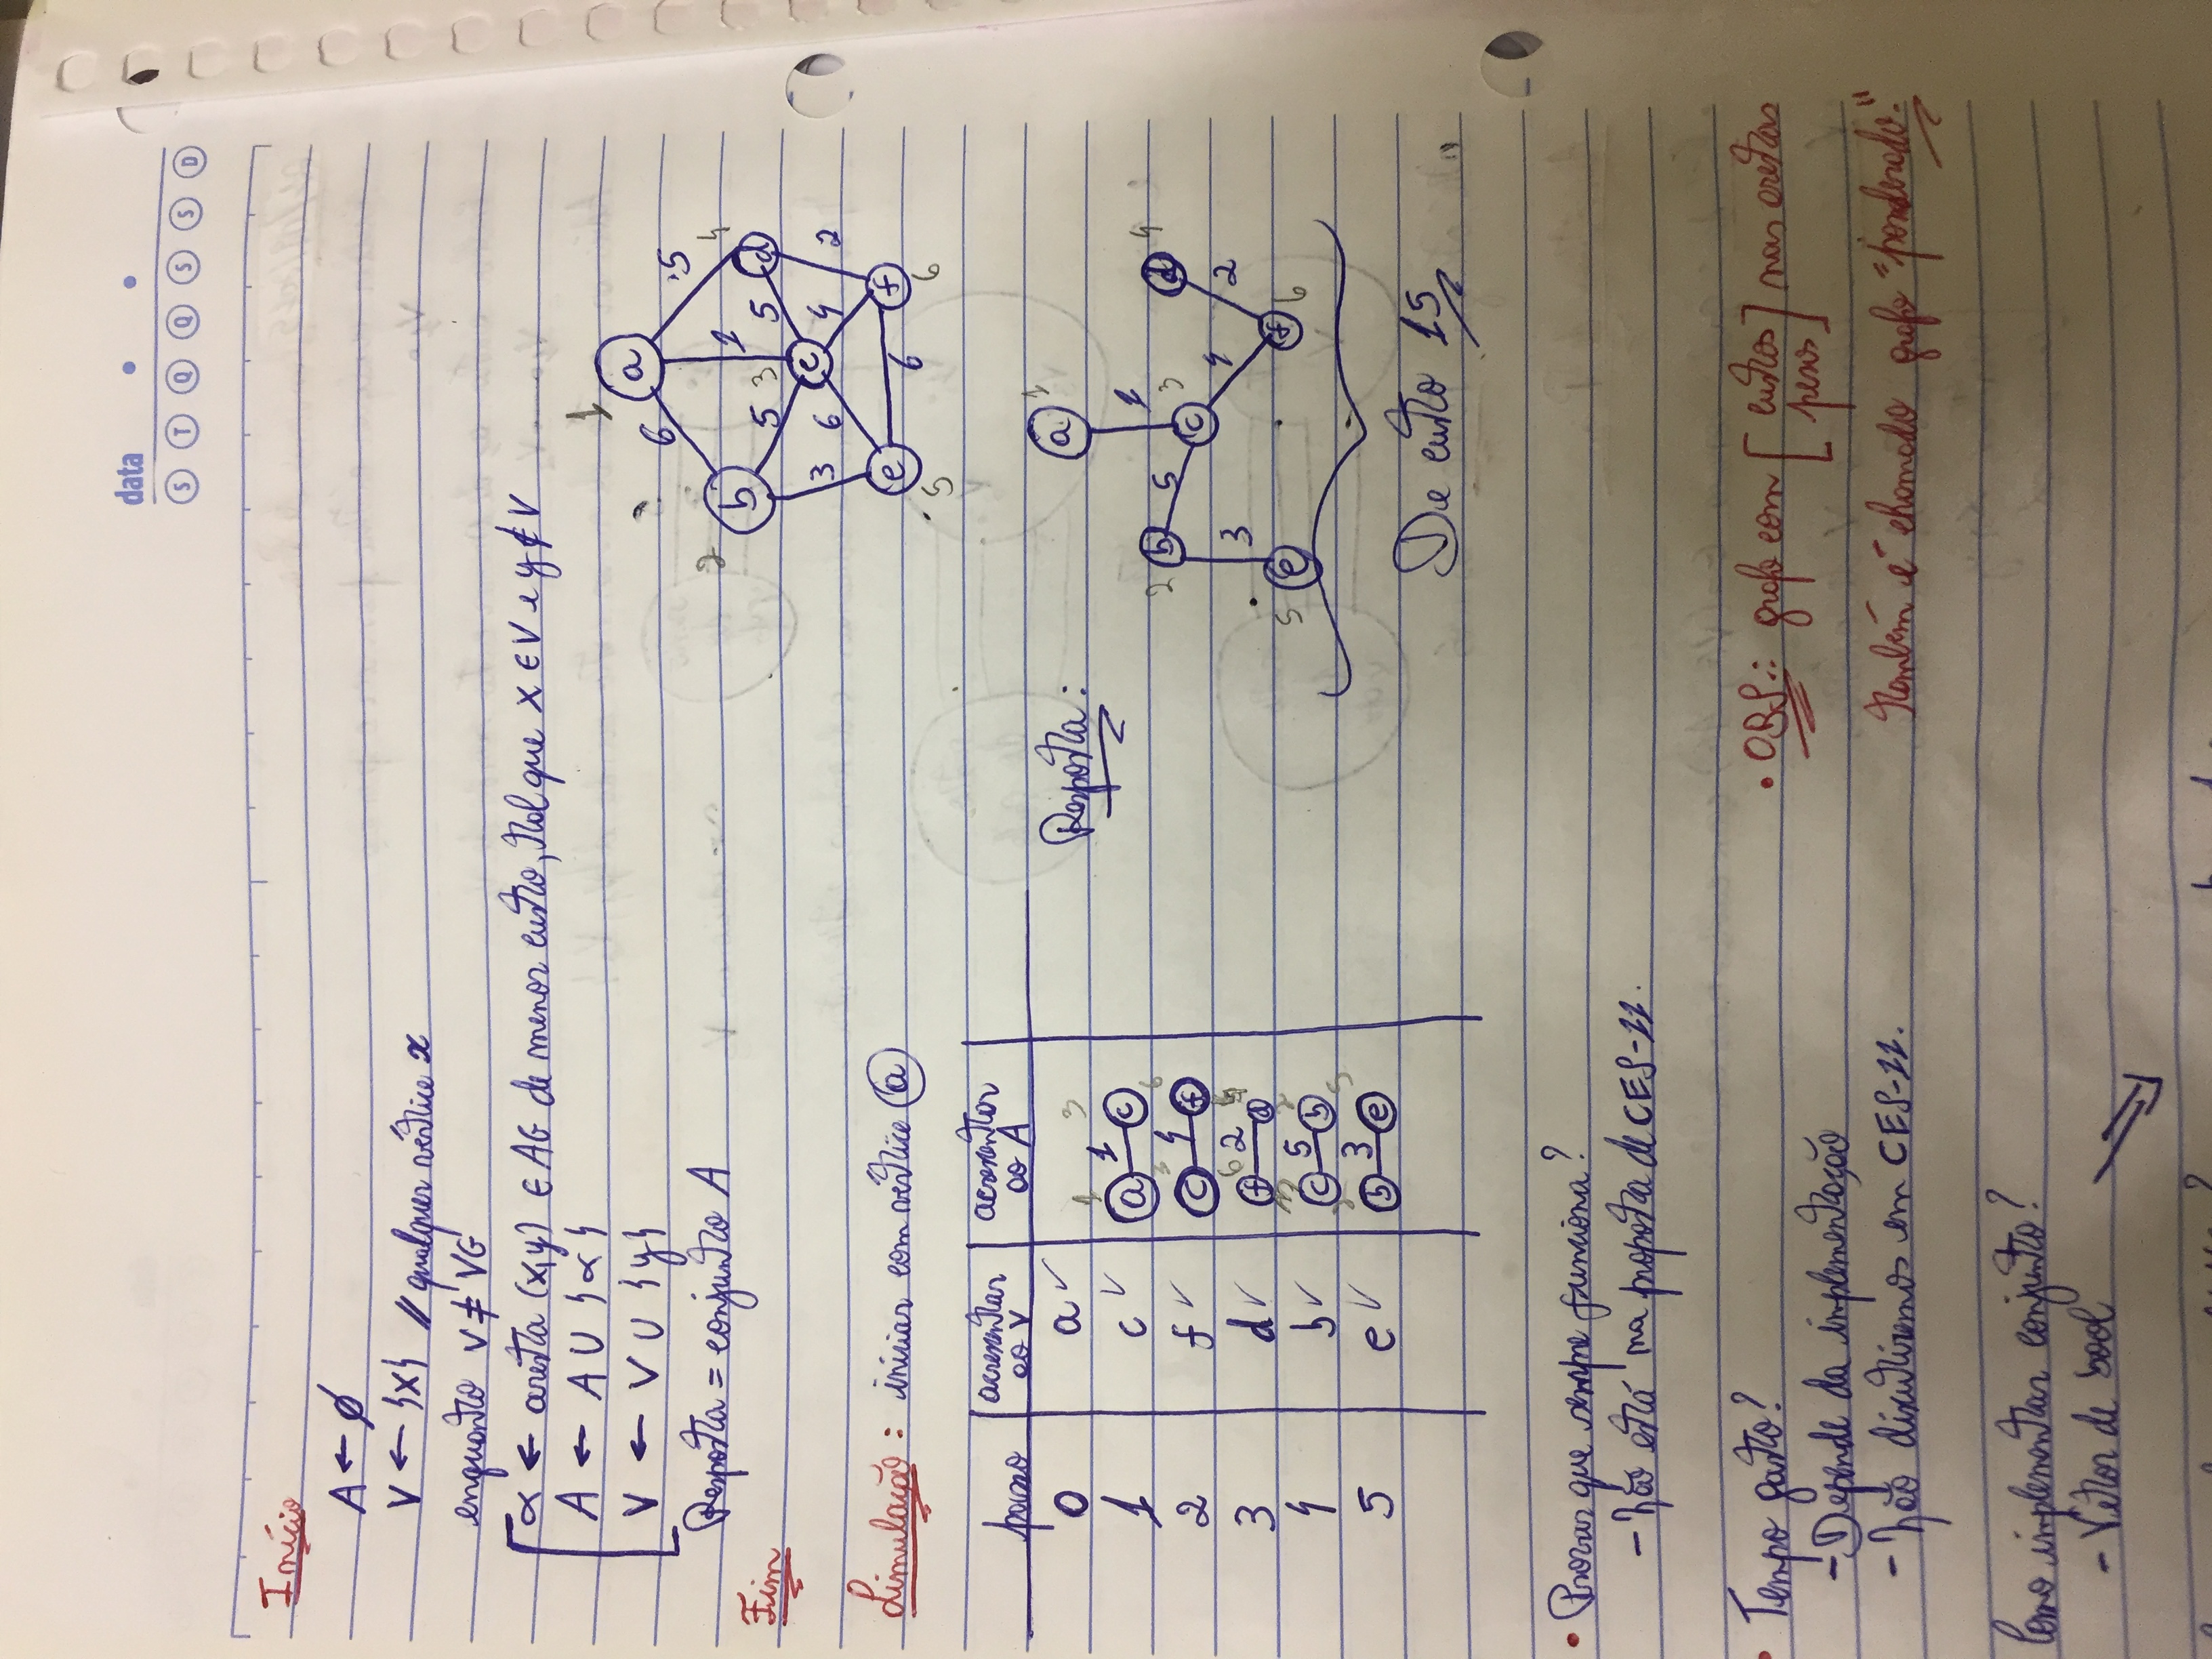 data
S T Q Q S S D
Início
A ← ∅
V ← {x} // qualquer vértice x
enquanto V ≠ VG
α ← aresta (x,y) ∈ AG de menor custo, tal que x ∈ V e y ∉ V
A ← A ∪ {α}
V ← V ∪ {y}
Resposta = conjunto A
Fim
1
a
6 1 5
2 b 3 4 d
5 5
c
3 6 4 2
e 6 f
5 6
Simulação: iniciar com vértice a
passo acrescentar ao V acrescentar ao A
0 a ✓
1 c ✓ a 1 c 1 3
2 f ✓ c 4 f 3 6
3 d ✓ f 2 d 6 4
4 b ✓ c 5 b 3 2
5 e ✓ b 3 e 2 5
Resposta:
a 1
1
2 b 5 c 3 d 4
3 4 2
5 e f 6
De custo 15
• Provar que sempre funciona?
- Não está na proposta de CES-11.
• Tempo gasto?
- Depende da implementação
- Não discutiremos em CES-11.
• OBS.: grafo com [custos pesos] nas arestas
também é chamado grafo "ponderado."
Como implementar conjunto?
- Vetor de bool